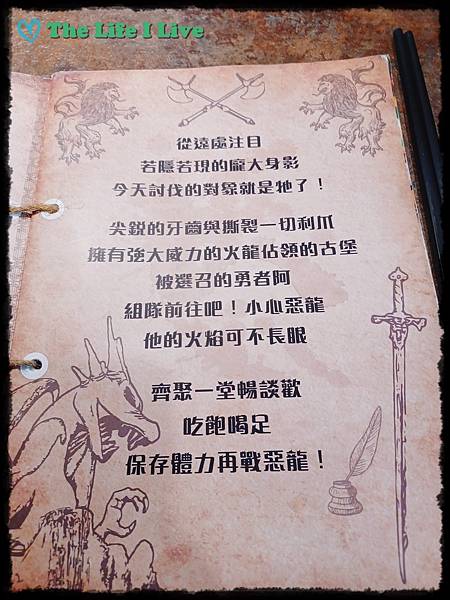 The Life I Live
從遠處注目
若隱若現的龐大身影
今天討伐的對象就是牠了！
尖銳的牙齒與撕裂一切利爪
擁有強大威力的火龍佔領的古堡
被選召的勇者阿
組隊前往吧！小心惡龍
他的火焰可不長眼
齊聚一堂暢談歡
吃飽喝足
保存體力再戰惡龍！